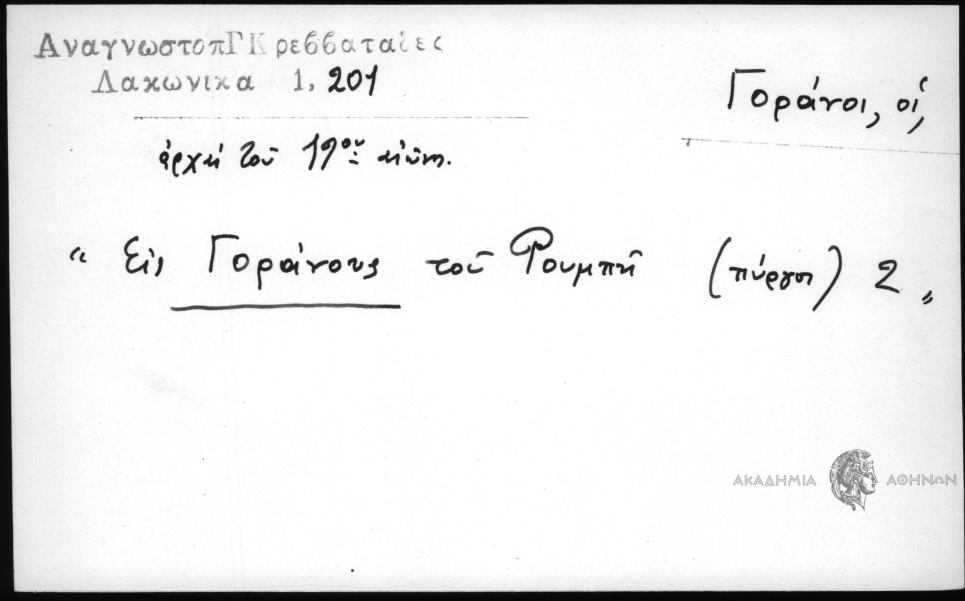 ΑναγνωστοπΓΚρεββαταῖες
Λακωνικα 1, 201
Γοράνοι, οἱ,
ἀρχαὶ τοῦ 19ου αἰῶν.
“ Εἰς Γοράνους τοῦ Ρουμπῆ (πύργοι) 2 „
ΑΚΑΔΗΜΙΑ ΑΘΗΝΩΝ